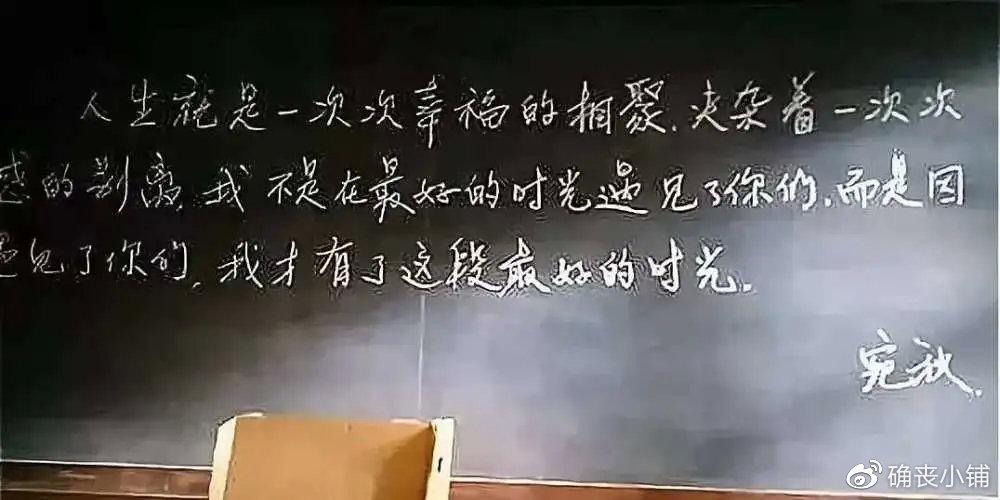 人生就是一次次幸福的相聚,夹杂着一次次
感的别离,我不是在最好的时光遇见了你们,而是因
遇见了你们,我才有了这段最好的时光.
宛秋.
@确丧小铺